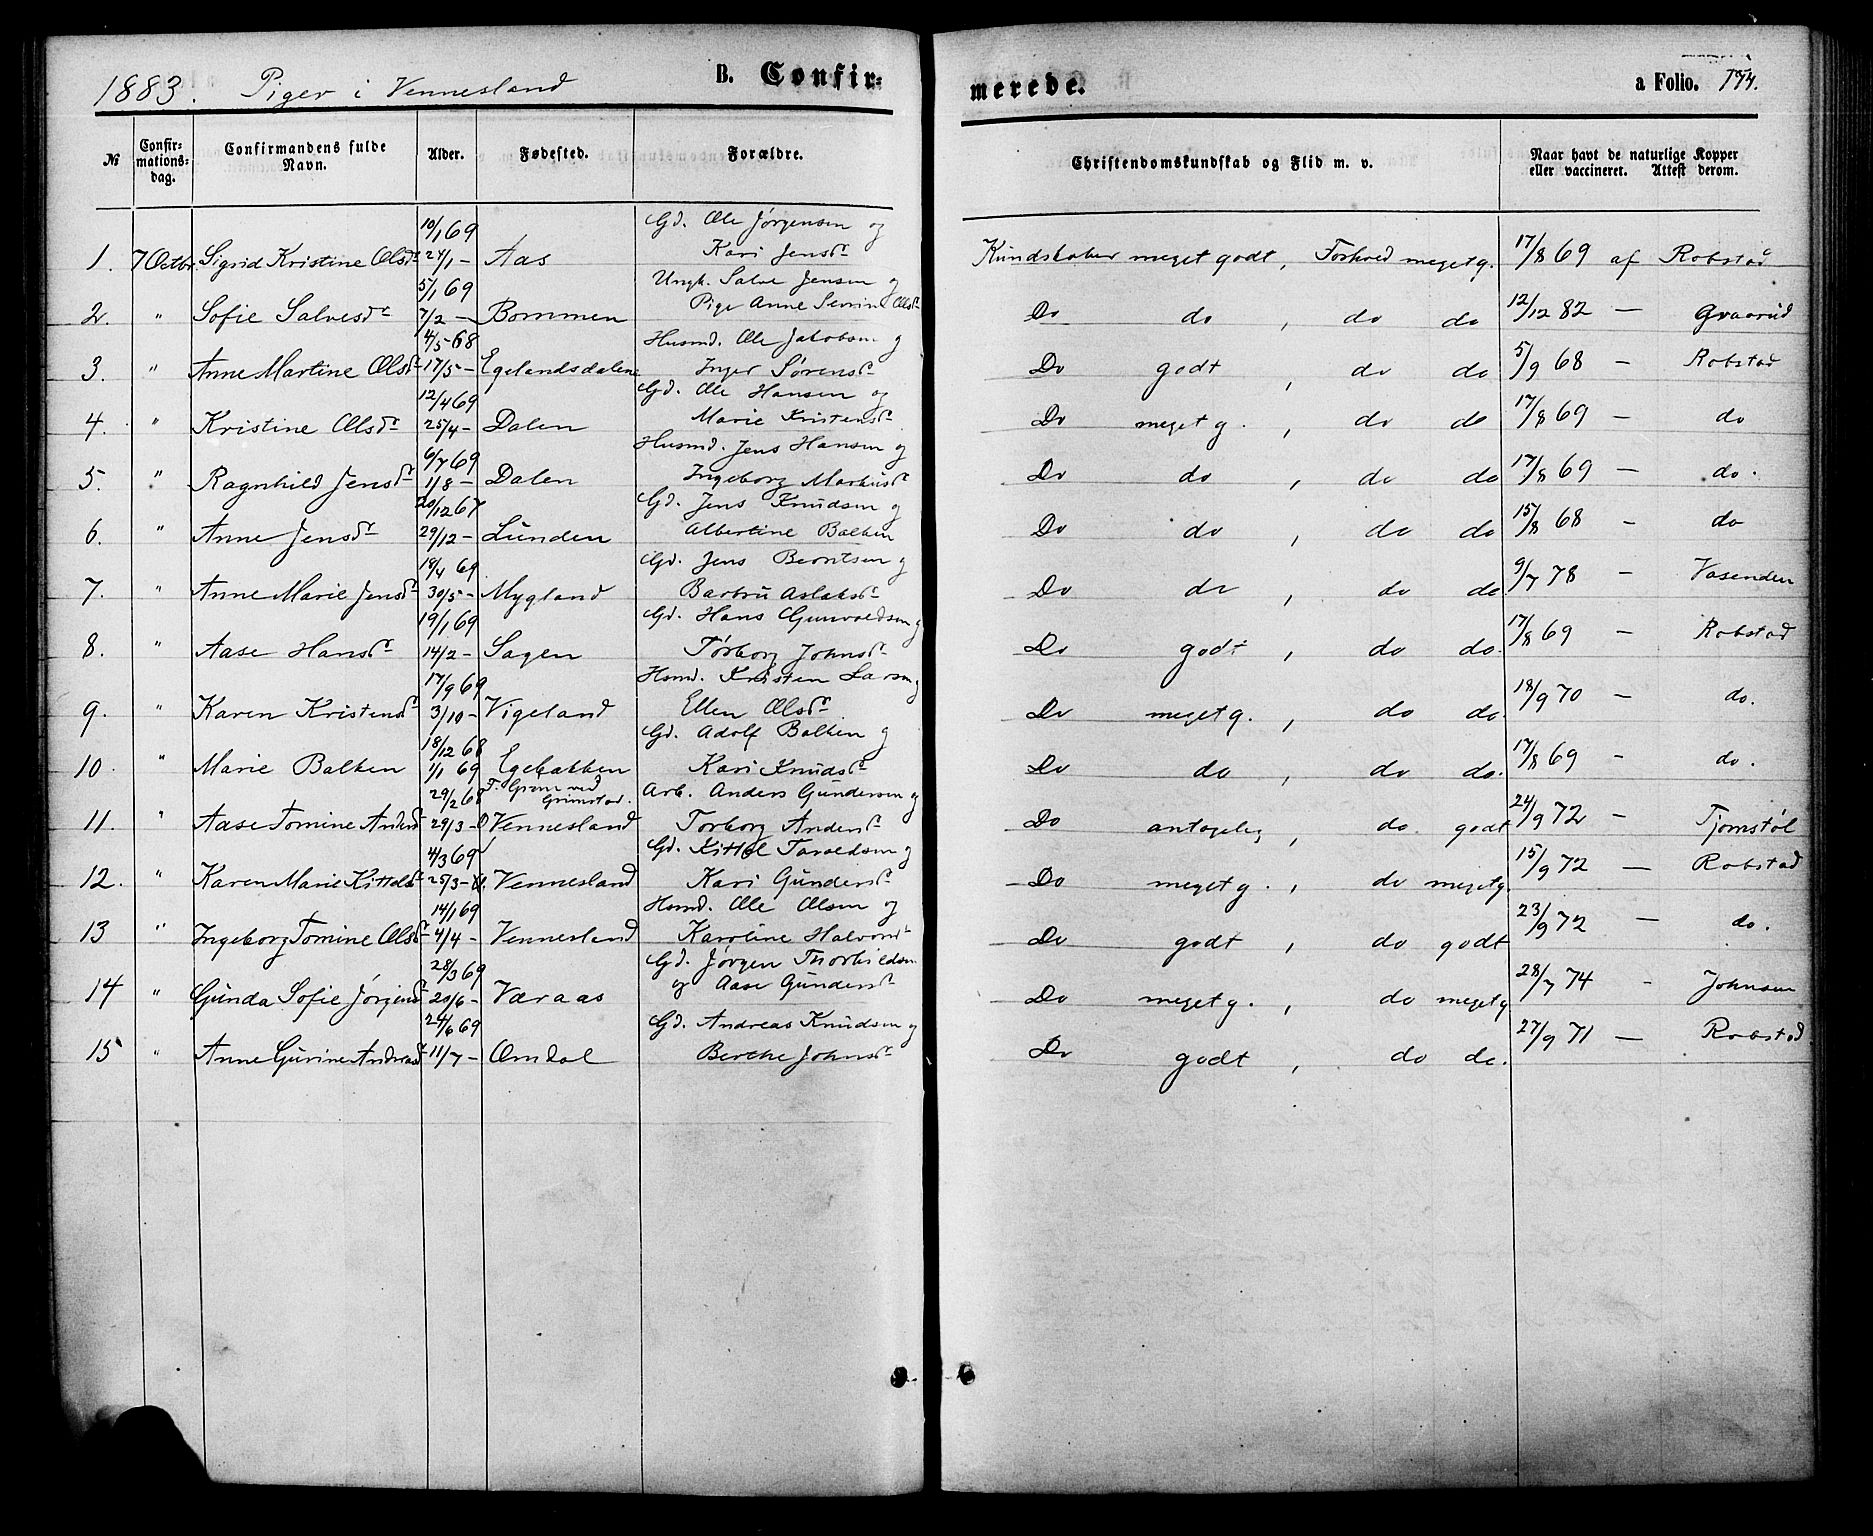 1883. Piger i Vennesland B. Confirmerede. a Folio. 174.
№ Confirmations-dag. Confirmandens fulde Navn. Alder. Fødested. Forældre. Christendomskundskab og Flid m. v. Naar havt de naturlige Kopper eller vaccineret. Attest derom.
10/1 69 Gd. Ole Jørgensen og
1. 7 Octbr. Sigrid Kristine Olsdr 24/1 - Aas Kari Jensdr Kundskaber meget godt, Forhold meget g. 17/8 69 af Robstad
5/1 69 Ungk. Salve Jensen og
2. " Sofie Salvesdr 7/2 - Bommen Pige Anne Sevrine Olsdr Do do, do do 12/12 82 — Graarud
4/5 68 Husmd. Ole Jakobsen og
3. " Anne Martine Olsdr 17/5 - Egelandsdalene Inger Sørensdr Do godt, do do 5/9 68 — Robstad
12/4 69 Gd. Ole Hansen og
4. " Kristine Olsdr 25/4 - Dalen Marie Kristensdr Do meget g., do do 17/8 69 — do
6/7 69 Husmd. Jens Hansen og
5. " Ragnhild Jensdr 1/8 - Dalen Ingeborg Markusdr Do do, do do 17/8 69 — do.
20/12 67 Gd. Jens Knudsen og
6. " Anne Jensdr 29/12 - Lunden Albertine Balken Do do, do do 15/8 68 — do
18/4 69 Gd. Jens Berntsen og
7. " Anne Marie Jensdr 30/5 - Mygland Barbru Aslaksdr Do do, do do 9/7 78 — Vasenden
19/1 69 Gd. Hans Gunvoldsen og
8. " Aase Hansdr 14/2 - Sagen Tørborg Johnsdr Do godt, do do. 17/8 69 — Robstad
17/9 69 Husmd. Kristen Larsen og
9. " Karen Kristensdr 3/10 - Vigeland Ellen Olsdr Do meget g., do do. 18/9 70 — do.
18/12 68 Gd. Adolf Balken og
10. " Marie Balken 1/1 69 Egebakken Kari Knudsdr Do do, do do. 17/8 69 — do.
29/2 68 F. Grøm ved Grimstad. Arb. Anders Gundersen og
11. " Aase Tomine Andersdr 29/3 - D Vennesland Torborg Andersdr Do antagelig, do. godt 24/9 72 — Tjomstøl
4/3 69 Gd. Kittel Tarvoldsen og
12. " Karen Marie Kittelsdr 25/3 - Vennesland Kari Gundersdr Do meget g., do meget g. 15/9 72 — Robstad
14/1 69 Husmd. Ole Olsen og
13 " Ingeborg Tomine Olsdr 4/4 - Vennesland Karoline Halvorsdr Do godt, do godt 23/9 72 — do.
28/3 69 Gd. Jørgen Thorkildsen
14 " Gunda Sofie Jørgensdr 20/6 - Væraas og Aase Gundersdr Do meget g., do meget g 28/7 74 - Johnsen
24/6 69 Gd. Andreas Knudsen og
15 " Anne Gurine Andreasdr 11/7 - Omdal Berthe Johnsdr Do godt, do do. 27/9 71 — Robstad.